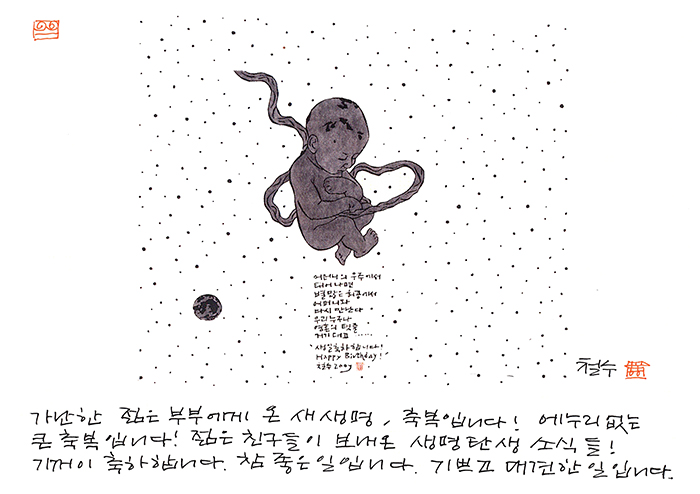 어머니의 우주에서
태어나면
별 많은 허공에서
어머니와
다시 만난다
우리 누구나
영혼의 탯줄
거기 대고 .....
"생일 축하합니다!
Happy Birthday!"
철수 2009
철수
가난한 젊은 부부에게 온 새 생명, 축복입니다! 에누리 없는
큰 축복입니다! 젊은 친구들이 보내온 생명탄생 소식들!
기꺼이 축하합니다. 참 좋은 일입니다. 기쁘고 대견한 일입니다.